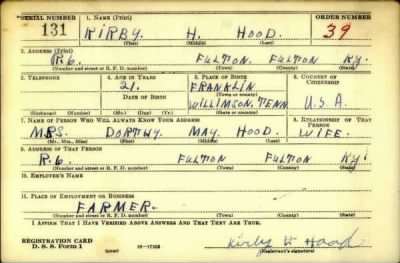 SERIAL NUMBER 1. NAME (Print) ORDER NUMBER
131 KIRBY. H. HOOD. 39
(First) (Middle) (Last)
2. ADDRESS (Print)
R.6 FULTON. FULTON KY.
(Number and street or R. F. D. number) (Town) (County) (State)
3. TELEPHONE 4. AGE IN YEARS 5. PLACE OF BIRTH 6. COUNTRY OF CITIZENSHIP
21. FRANKLIN
DATE OF BIRTH (Town or county)
WILLIMSON. TENN. U.S.A.
(Exchange) (Number) (Mo.) (Day) (Yr.) (State or country)
7. NAME OF PERSON WHO WILL ALWAYS KNOW YOUR ADDRESS 8. RELATIONSHIP OF THAT PERSON
MRS. DORTHY MAY. HOOD. WIFE.
(Mr., Mrs., Miss) (First) (Middle) (Last)
9. ADDRESS OF THAT PERSON
R.6 FULTON FULTON KY.
(Number and street or R. F. D. number) (Town) (County) (State)
10. EMPLOYER'S NAME
11. PLACE OF EMPLOYMENT OR BUSINESS
FARMER.
(Number and street or R. F. D. number) (Town) (County) (State)
I AFFIRM THAT I HAVE VERIFIED ABOVE ANSWERS AND THAT THEY ARE TRUE.
REGISTRATION CARD
D. S. S. Form 1 (over) 16-17105 Kirby H Hood
(Registrant's signature)